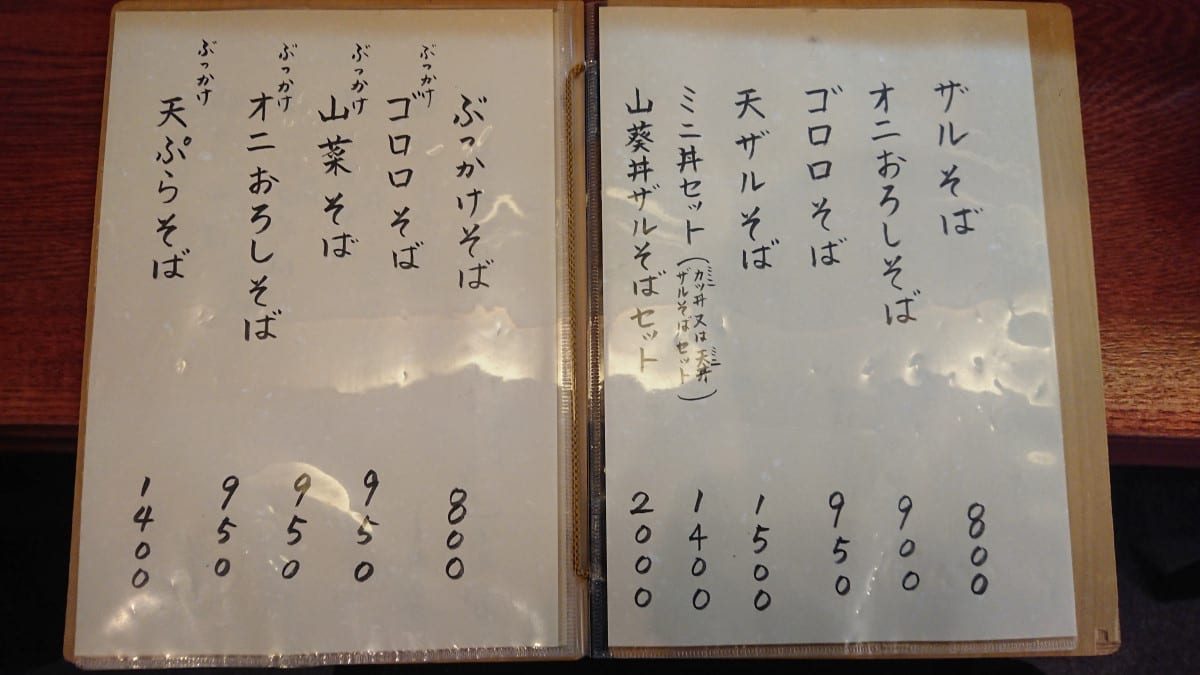 ザルそば 800
オニおろしそば 900
ゴロロそば 950
天ザルそば 1500
ミニ丼セット(ミニカツ丼又はミニ天丼 ザルそばセット) 1400
山葵丼ザルそばセット 2000
ぶっかけそば 800
ぶっかけ ゴロロそば 950
ぶっかけ 山菜そば 950
ぶっかけ オニおろしそば 950
ぶっかけ 天ぷらそば 1400